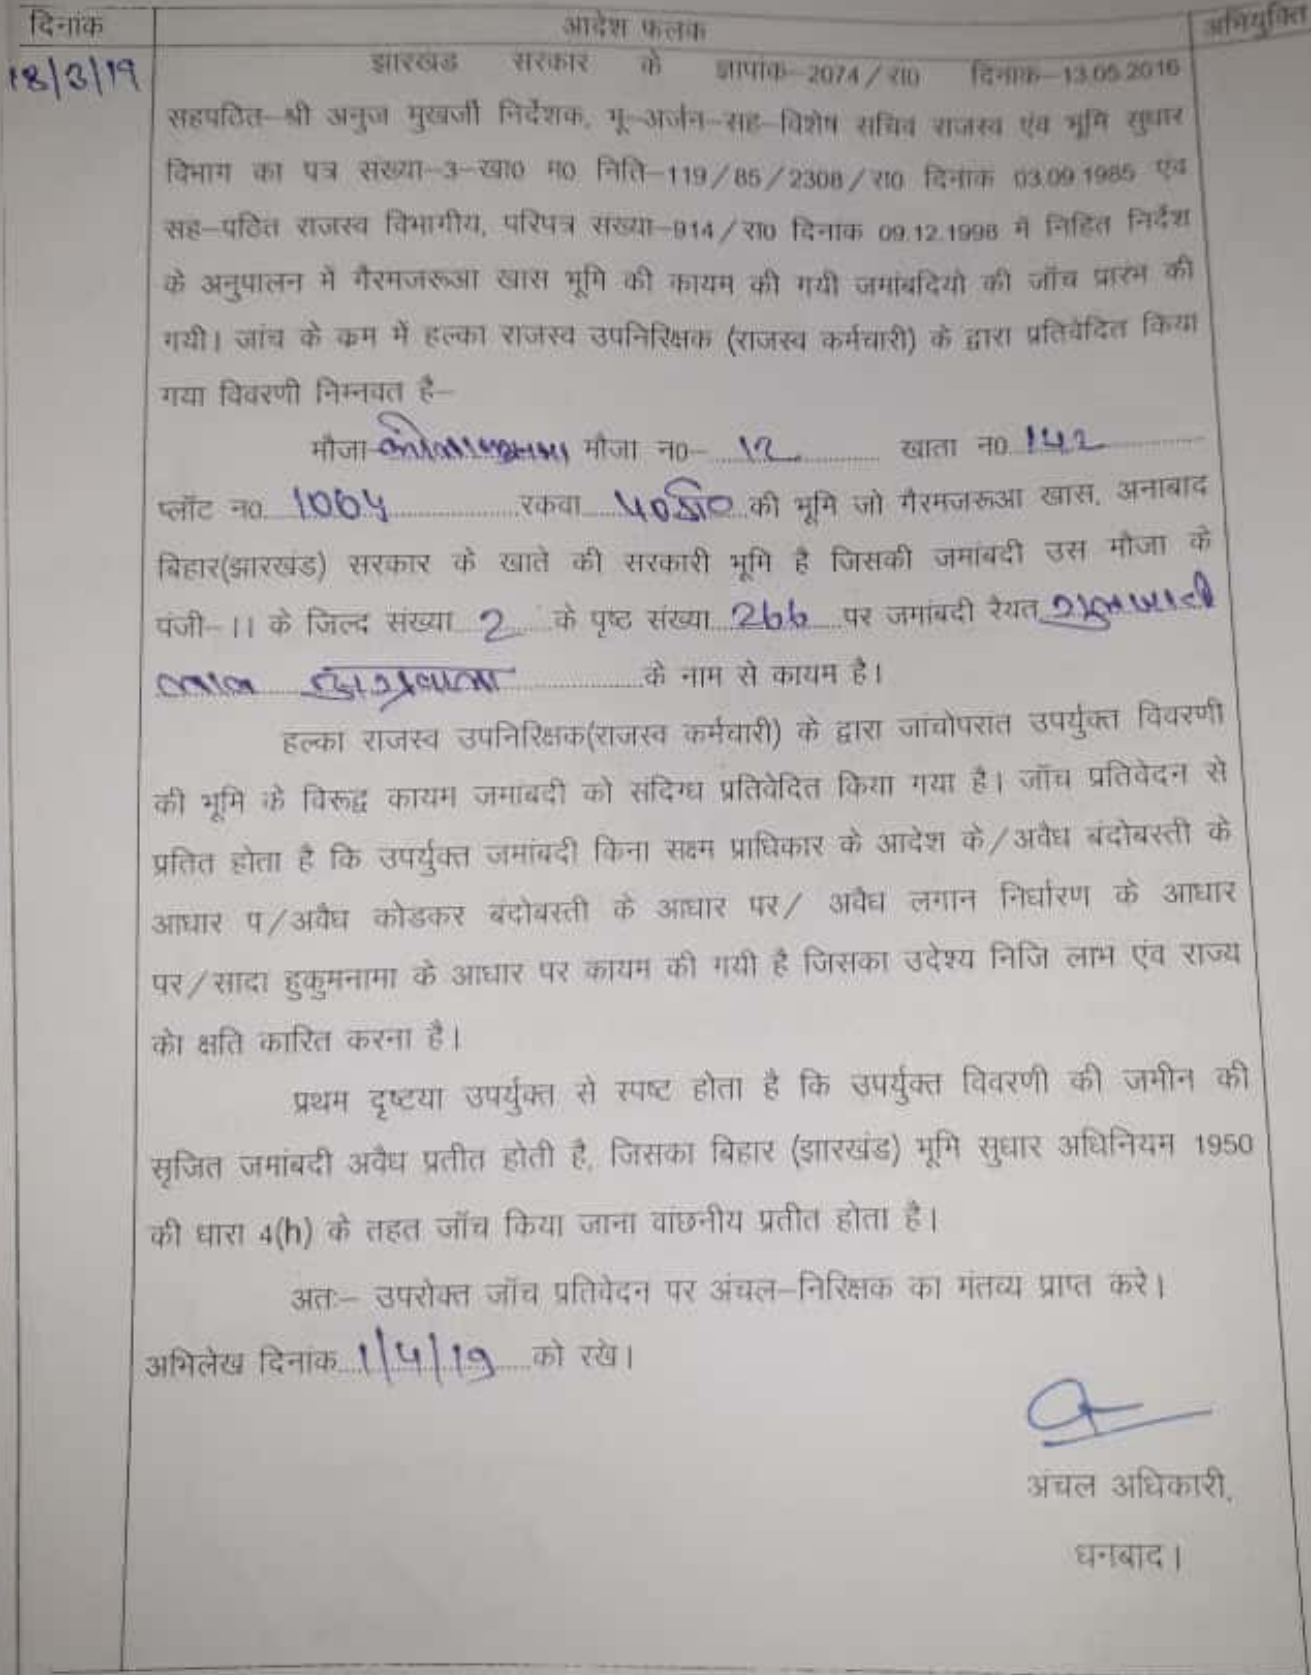 दिनांक आदेश फलक अभियुक्ति
18/3/19 झारखंड सरकार के ज्ञापांक-2074/रा0 दिनांक-13.05.2016
सहपठित-श्री अनुज मुखर्जी निर्देशक, भू-अर्जन-सह-विशेष सचिव राजस्व एंव भूमि सुधार
विभाग का पत्र संख्या-3-खा0 म0 निति-119/85/2308/रा0 दिनांक 03.09.1985 एंव
सह-पठित राजस्व विभागीय, परिपत्र संख्या-914/रा0 दिनांक 09.12.1998 में निहित निर्देश
के अनुपालन में गैरमजरूआ खास भूमि की कायम की गयी जमांबदियो की जॉच प्रारंभ की
गयी। जांच के कम में हल्का राजस्व उपनिरिक्षक (राजस्व कर्मचारी) के द्वारा प्रतिवेदित किया
गया विवरणी निम्नवत है-
मौजा- मौजा न0- 12 खाता न0 142
प्लॉट न0 1064 रकवा 40डि0 की भूमि जो गैरमजरूआ खास, अनाबाद
बिहार(झारखंड) सरकार के खाते की सरकारी भूमि है जिसकी जमांबदी उस मौजा के
पंजी-।। के जिल्द संख्या 2 के पृष्ट संख्या 266 पर जमांबदी रैयत
लाल के नाम से कायम है।
हल्का राजस्व उपनिरिक्षक(राजस्व कर्मचारी) के द्वारा जांचोपरात उपर्युक्त विवरणी
की भूमि के विरूद्व कायम जमाबदी को संदिग्ध प्रतिवेदित किया गया है। जॉच प्रतिवेदन से
प्रतित होता है कि उपर्युक्त जमांबदी किना सक्ष्म प्राधिकार के आदेश के/अवैध बंदोबस्ती के
आधार प/अवैध कोडकर बंदोबस्ती के आधार पर/ अवैध लगान निर्धारण के आधार
पर/सादा हुकुमनामा के आधार पर कायम की गयी है जिसका उदेश्य निजि लाभ एंव राज्य
केा क्षति कारित करना है।
प्रथम दृष्टया उपर्युक्त से स्पष्ट होता है कि उपर्युक्त विवरणी की जमीन की
सृजित जमांबदी अवैध प्रतीत होती है, जिसका बिहार (झारखंड) भूमि सुधार अधिनियम 1950
की धारा 4(h) के तहत जॉच किया जाना वांछनीय प्रतीत होता है।
अतः- उपरोक्त जॉच प्रतिवेदन पर अंचल-निरिक्षक का मंतव्य प्राप्त करे।
अभिलेख दिनांक 1/4/19 को रखे।
अंचल अधिकारी,
धनबाद।